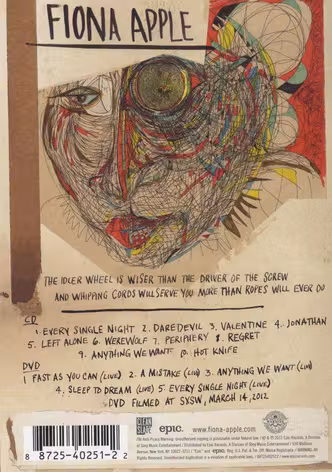 FIONA APPLE
THE IDLER WHEEL IS WISER THAN THE DRIVER OF THE SCREW
AND WHIPPING CORDS WILL SERVE YOU MORE THAN ROPES WILL EVER DO
CD
1. EVERY SINGLE NIGHT 2. DAREDEVIL 3. VALENTINE 4. JONATHAN
5. LEFT ALONE 6. WEREWOLF 7. PERIPHERY 8. REGRET
9. ANYTHING WE WANT 10. HOT KNIFE
DVD
1 FAST AS YOU CAN (LIVE) 2. A MISTAKE (LIVE) 3. ANYTHING WE WANT (LIVE)
4. SLEEP TO DREAM (LIVE) 5. EVERY SINGLE NIGHT (LIVE)
DVD FILMED AT SXSW, MARCH 14, 2012
CLEAN SLATE epic. www.fiona-apple.com
8 8725-40251-2 2